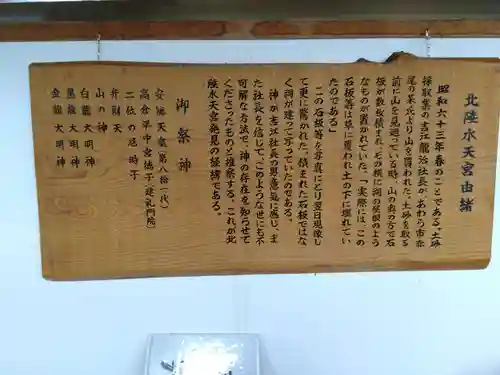 北陸水天宮由緒
昭和六十三年春のことである。土砂
採取業の吉江龍治社長が、あわら市赤
尾の某氏より山を買われた。土砂を取る
前に山を見廻っている時、山の奥の方で石
板が数枚積まれ、その横に祠の残骸のよう
なものが置かれていた。「実際には、この
石板等は草に覆われ土の下に埋れてい
たのである」
この石板等を写真にとり翌日現像し
て更に驚かれた。積まれた石板ではな
く祠が建って写っていたのである。
神が吉江社長の男意気に感じ、ま
た社長を信じて、このような世にも不
可解な方法で、神の存在を知らせて
くださったものと推察する。これが北
陸水天宮発見の経緯である。
御祭神
安徳天皇(第八十一代)
高倉平中宮徳子(建礼門院)
二位の尼時子
弁財天
山の神
白龍大明神
黒龍大明神
金龍大明神